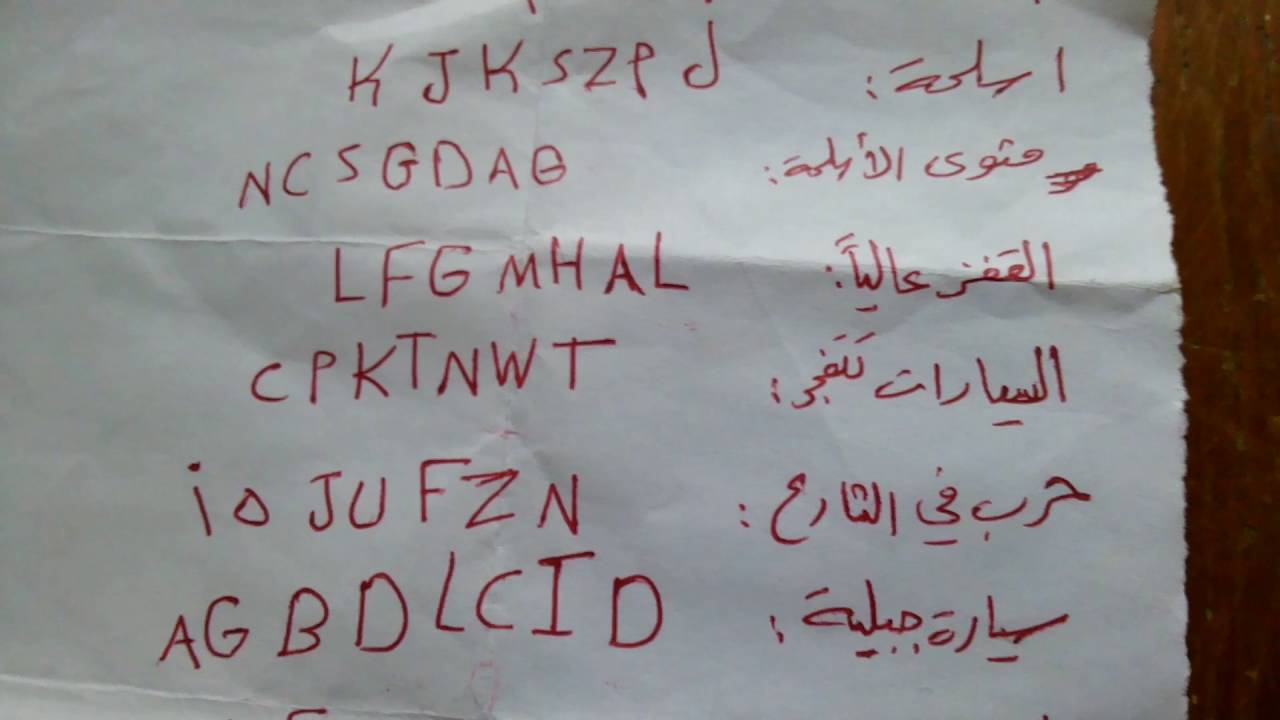 اسلحة: KJKSZPJ
متوى الأسلحة: NCSGDAG
القفز عالياً: LFGMHAL
السيارات تَتَفجر: CPKTNWT
حرب في الشارع: ioJUFZN
سيارة جبلية: AGBDLCID